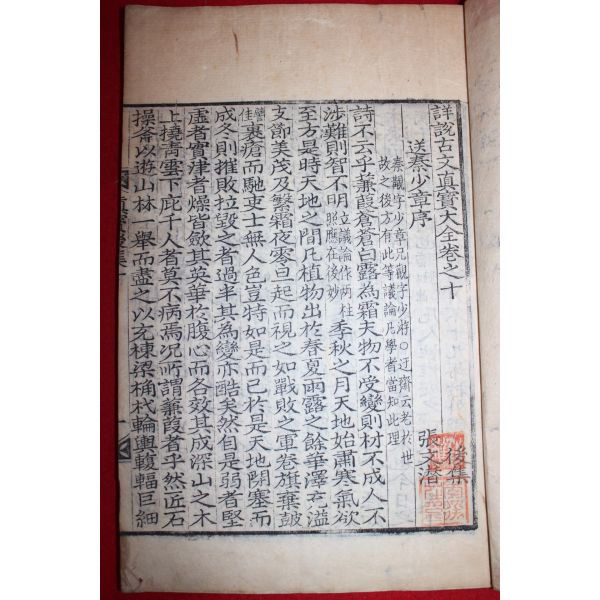 詳說古文眞寶大全卷之十
後集
送秦少章序
張文潛
秦覯字少章兄觀字少游○迂齋云老於世
故之後方有此等議論凡學者當知此理
詩不云乎蒹葭蒼蒼白露為霜夫物不受變則材不成人不
涉難則智不明立議論作兩柱昭應在後妙季秋之月天地始肅寒氣欲
至方是時天地之間凡植物出於春夏雨露之餘華澤充溢
支節美茂及繁霜夜零旦起而視之如戰敗之軍卷旗棄鼓
譬佳裹瘡而馳吏士無人色豈特如是而已於是天地閉塞而
成冬則摧敗拉毀之者過半其為變亦酷矣然自是弱者堅
虛者實津者燥皆斂其英華於腹心而各效其成深山之木
上撓靑雲下庇千人者莫不病焉况所謂蒹葭者乎然匠石
操斧以遊山林一舉而盡之以充棟梁桷杙輪輿輹輻巨細